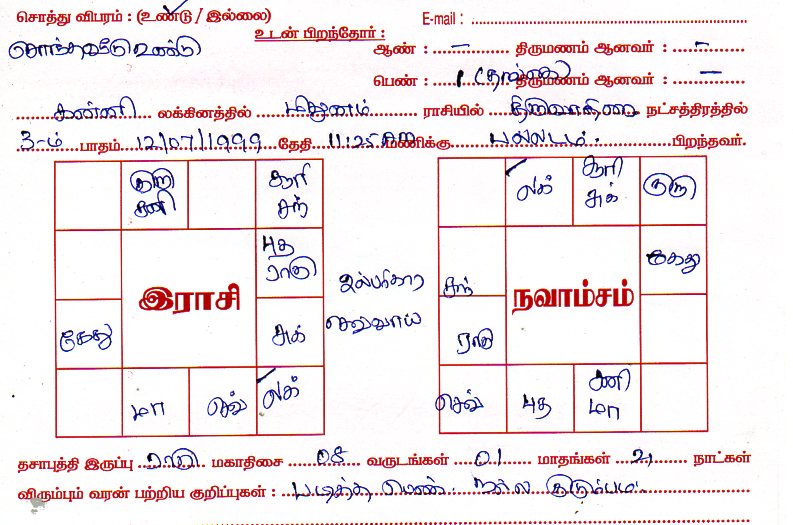 சொத்து விபரம் : (உண்டு / இல்லை)
E-mail :
சொந்தவீடு உண்டு
உடன் பிறந்தோர் :
ஆண் : – திருமணம் ஆனவர் : –
பெண் : 1 (தங்கை) திருமணம் ஆனவர் : –
கன்னி லக்கினத்தில் மிதுனம் ராசியில் திருவாதிரை நட்சத்திரத்தில்
3-ம் பாதம் 12/07/1999 தேதி 11:25 AM மணிக்கு பல்லடம். பிறந்தவர்.
குரு சனி
சூரி சந்
புத ராகு
கேது
சுக்
மா
செவ்
லக்
இராசி
பரிகார செவ்வாய்
லக்
சூரி சுக்
குரு
சந்
கேது
ராகு
செவ்
புத
சனி மா
நவாம்சம்
தசாபுத்தி இருப்பு ராகு மகாதிசை 08 வருடங்கள் 01 மாதங்கள் 2 நாட்கள்
விரும்பும் வரன் பற்றிய குறிப்புகள் : படித்த பெண். நல்ல குடும்பம்.